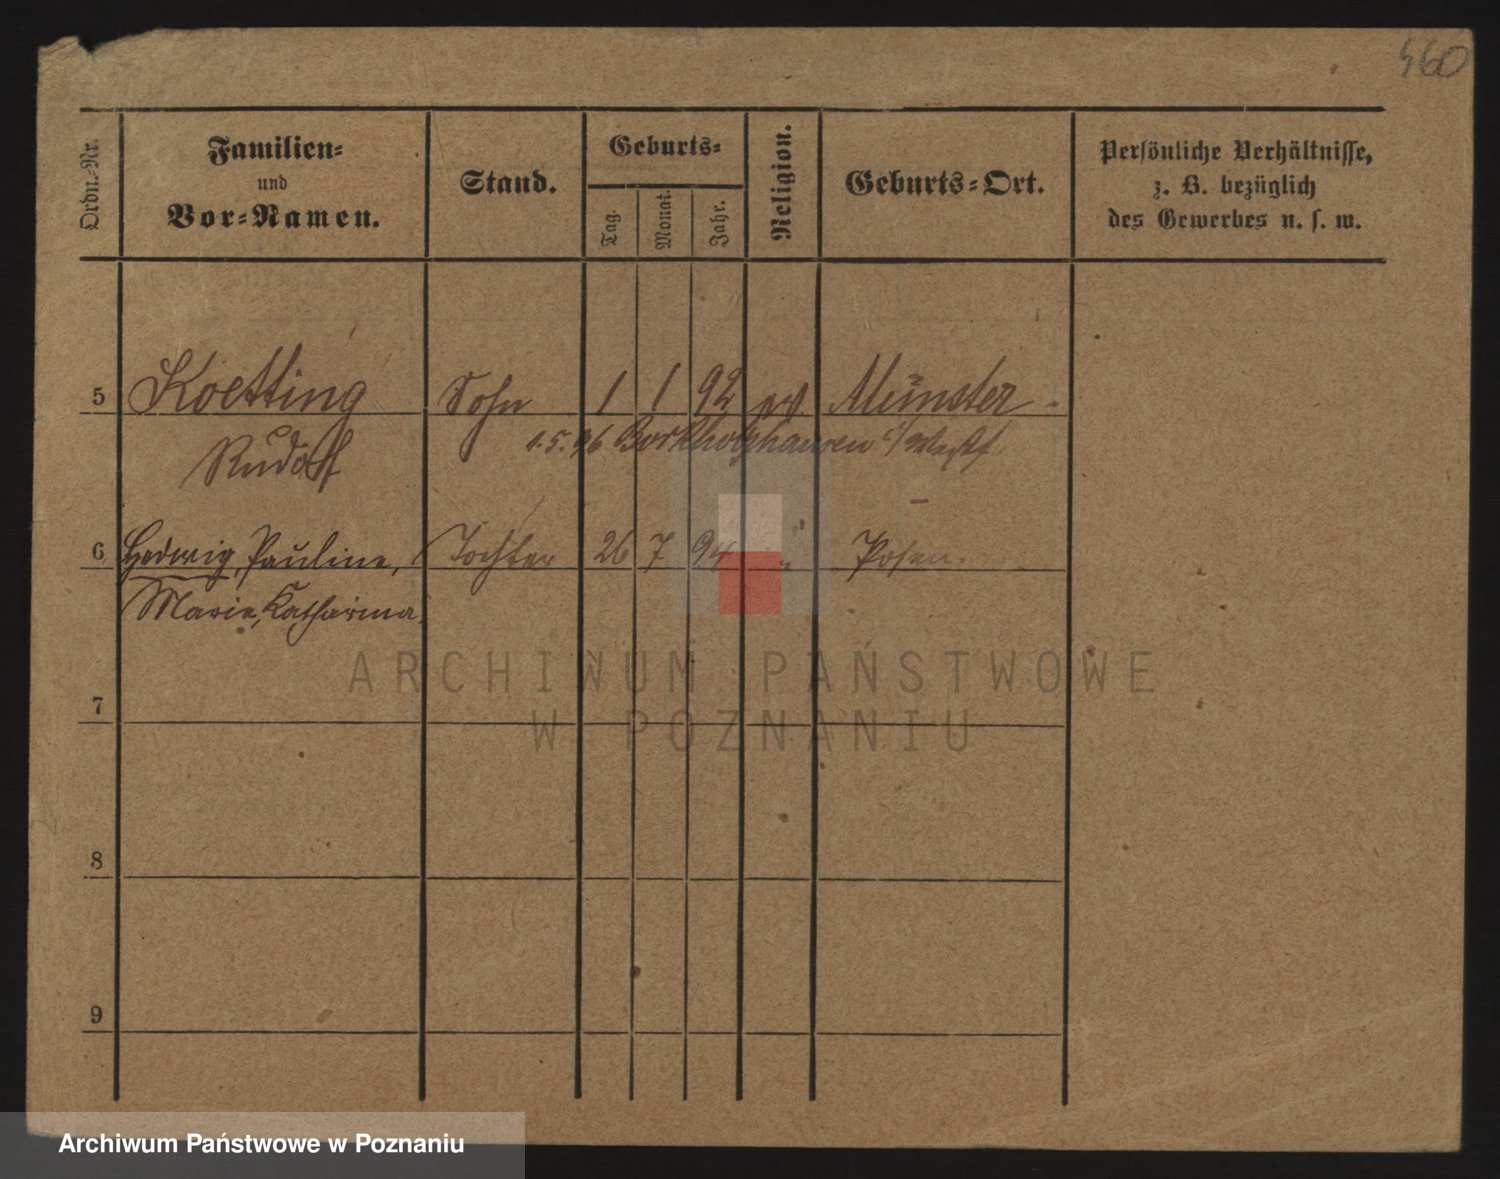 460
Ordn.-Nr.
Familien-
und
Vor-Namen.
Stand.
Geburts-
Tag.
Monat.
Jahr.
Religion.
Geburts-Ort.
Persönliche Verhältnisse,
z. B. bezüglich
des Gewerbes u. s. w.
5 Koetting Sohn 1 1 92 Münster
1.5.96 Borkholzhausen i/Westf.
Rudolf
6 Hedwig, Pauline, Tochter 26 7 94 " Posen.
Marie, Katharina.
ARCHIWUM PAŃSTWOWE
7
W POZNANIU
8
9
Archiwum Państwowe w Poznaniu